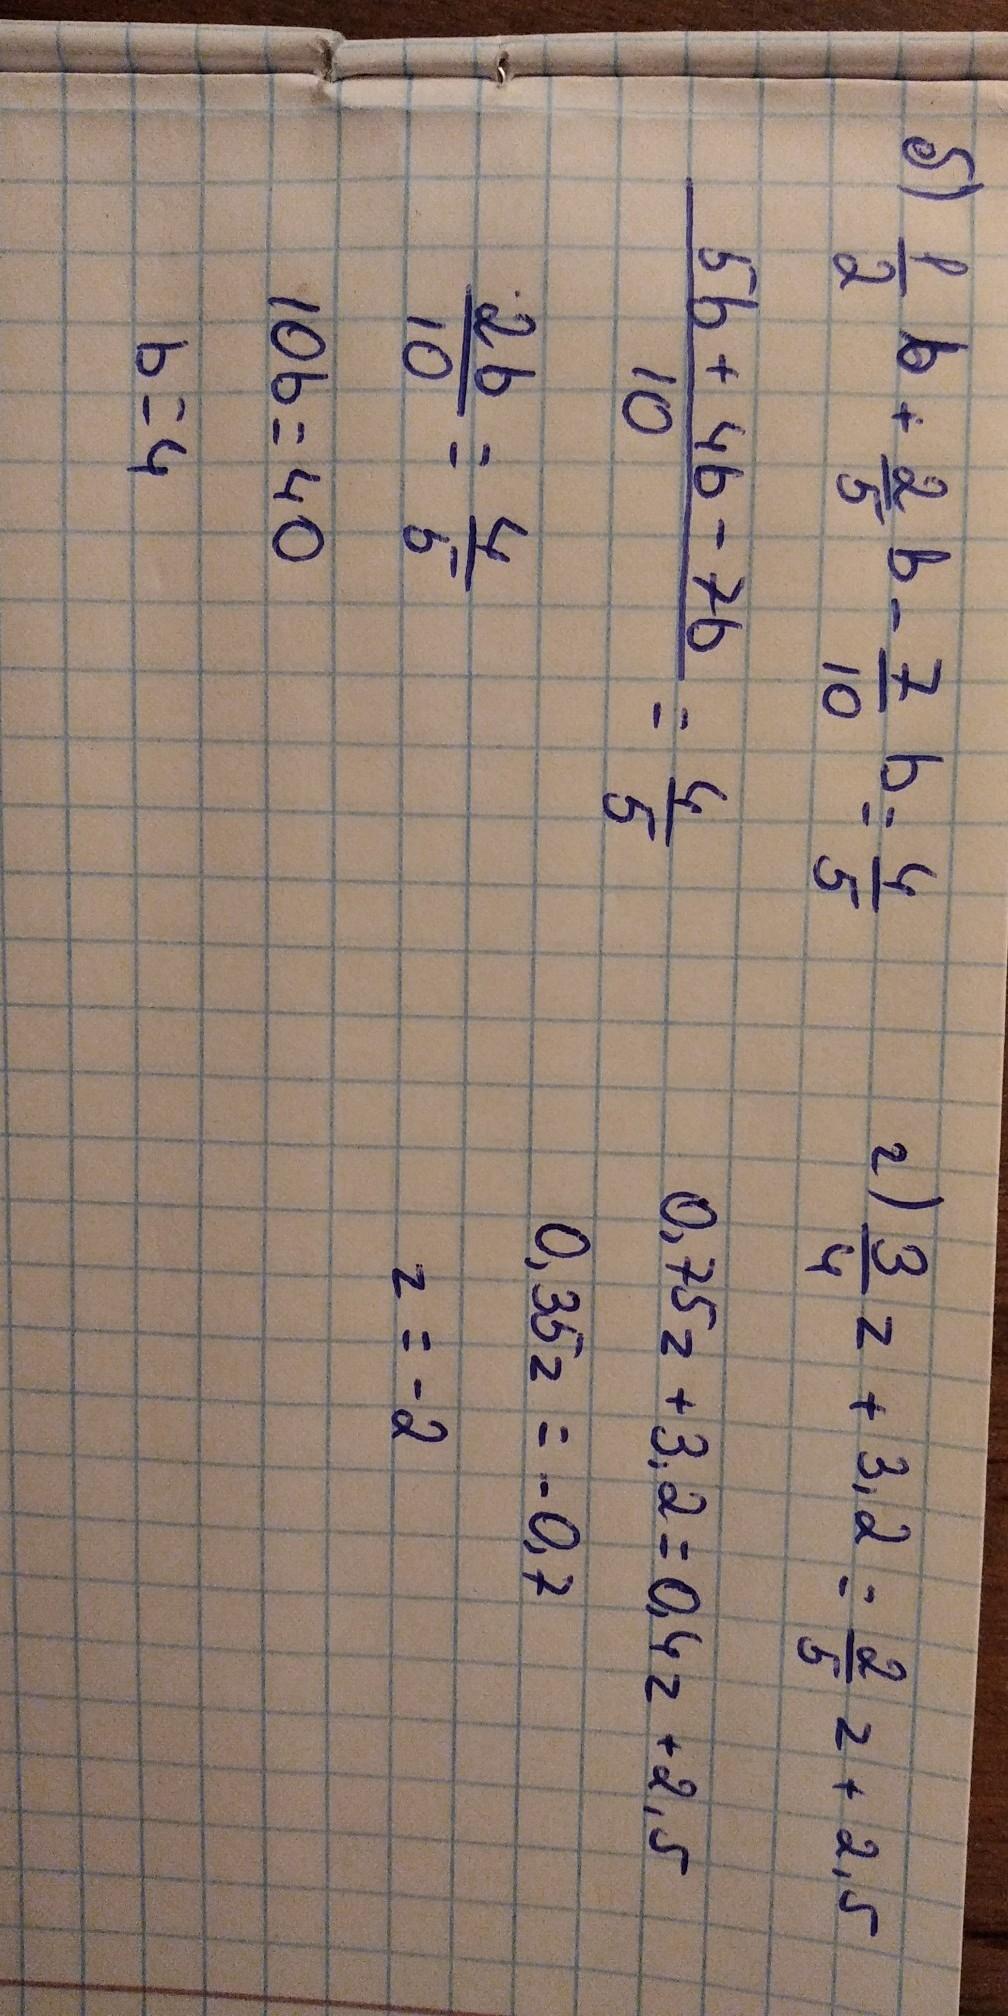 б) 1/2 b + 2/5 b - 7/10 b = 4/5
(5b + 4b - 7b)/10 = 4/5
2b/10 = 4/5
10b = 40
b = 4
г) 3/4 z + 3,2 = 2/5 z + 2,5
0,75z + 3,2 = 0,4z + 2,5
0,35z = -0,7
z = -2